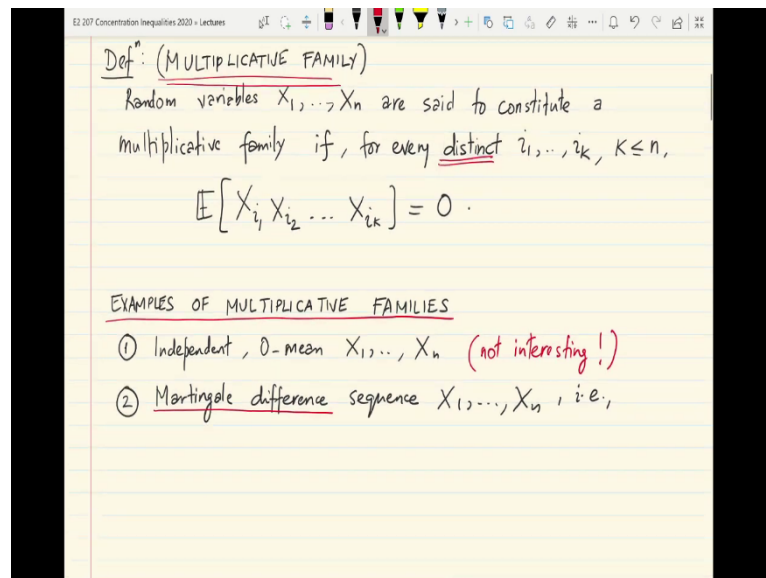 E2 207 Concentration Inequalities 2020 » Lectures
Defⁿ: (MULTIPLICATIVE FAMILY)
Random variables X₁, .., Xₙ are said to constitute a
multiplicative family if, for every distinct i₁, .., iₖ, K ≤ n,
𝔼[X_{i₁} X_{i₂} ... X_{iₖ}] = 0.
EXAMPLES OF MULTIPLICATIVE FAMILIES
① Independent, 0-mean X₁, .., Xₙ (not interesting!)
② Martingale difference sequence X₁, ..., Xₙ, i.e.,